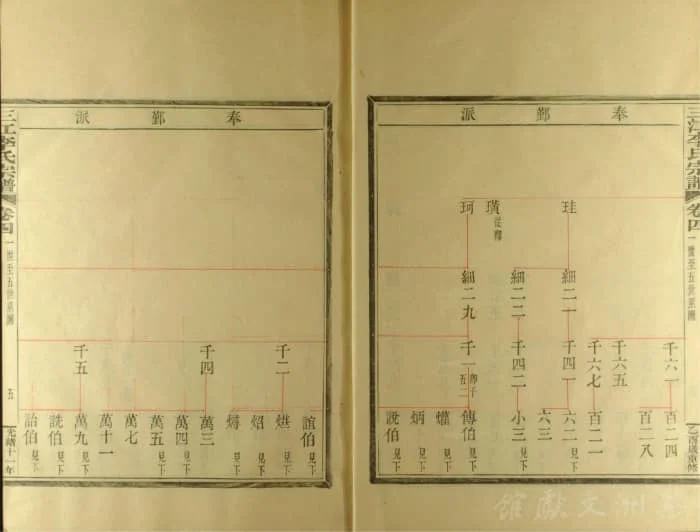 三江李氏宗譜
卷四
一世至五世系圖
乙酉歲重修
奉鄞派
珪
璜
從釋
珂
細二一
細二二
細二九
千六一
千六五
千六七
千四一
千四二
千一
卽千五二
百二四
百二八
百二一
六二見下
六三
小三見下
傳伯見下
爟
炳見下
說伯見下
奉鄞派
千二
千四
千五
誼伯見下
烘見下
炤見下
燖見下
萬三見下
萬四見下
萬五見下
萬七
萬十一
萬九見下
詵伯見下
詒伯見下
三江李氏宗譜
卷四
一世至五世系圖
五
光緒十一年
文獻館